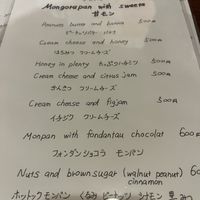 Mongorapan with sweets
甘モン
Peanuts butter and banana 500円
ピーナッツバター バナナ
Cream cheese and honey 500円
はちみつ クリームチーズ
Honey in plenty たっぷりハチミツ 500円
Cream cheese and citrus jam 500円
かんきつ クリームチーズ
Cream cheese and figjam 500円
イチジク クリームチーズ
Monpan with fondantau chocolat 600
フォンダンショコラ モンパン
Nuts and brown sugar (walnut peanut) 60
cinnamon
ホットック モンパン くるみ ピーナッツ シナモン 黒みつ